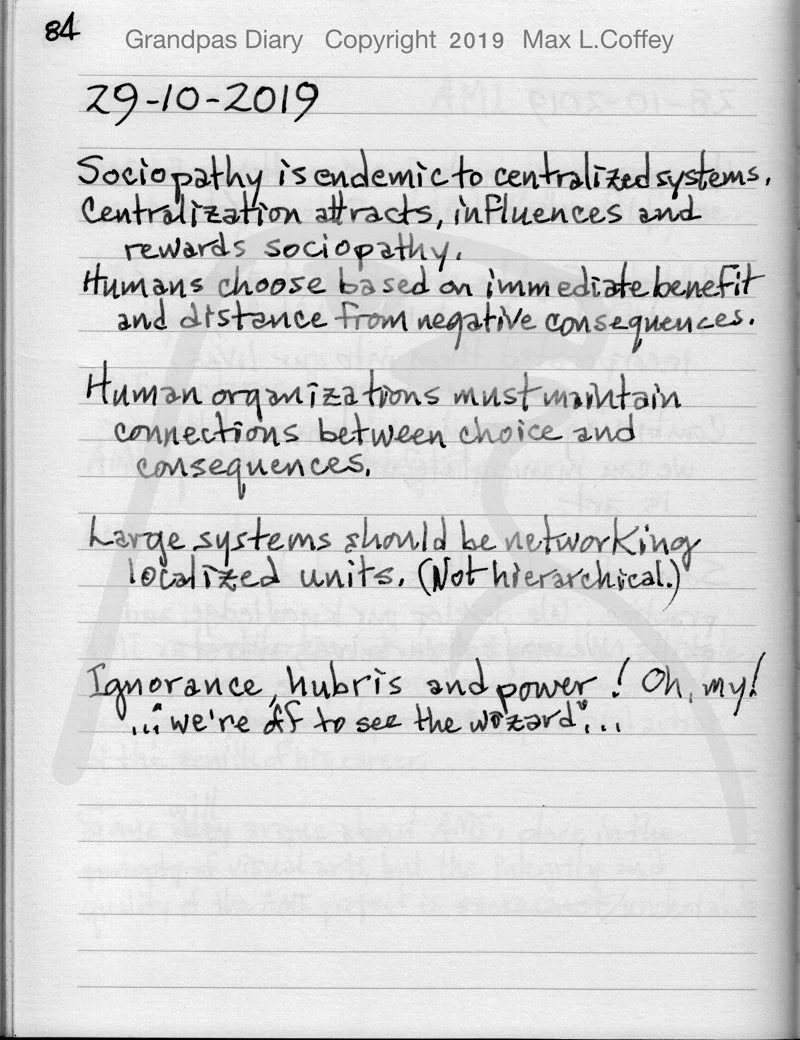 84
Grandpas Diary Copyright 2019 Max L.Coffey
29-10-2019
Sociopathy is endemic to centralized systems.
Centralization attracts, influences and
rewards sociopathy.
Humans choose based on immediate benefit
and distance from negative consequences.
Human organizations must maintain
connections between choice and
consequences.
Large systems should be networking
localized units. (Not hierarchical.)
Ignorance, hubris and power! Oh, my!
..."we're off to see the wizard"...